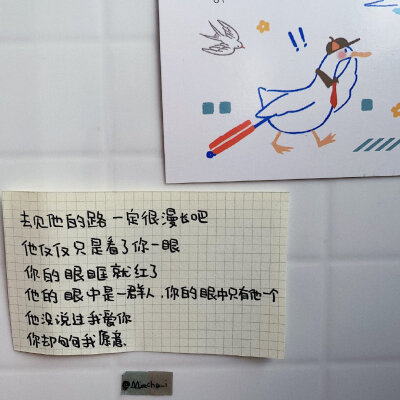 !!
去见他的路一定很漫长吧
他仅仅只是看了你一眼
你的眼眶就红了
他的眼中是一群人，你的眼中只有他一个
他没说过我爱你
你却句句我愿意、